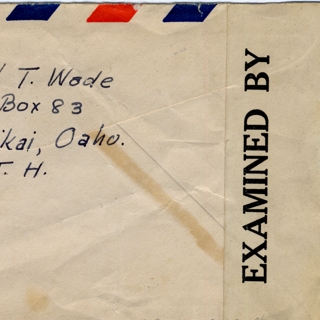 T. Wade
Box 83
ikai, Oahu.
T. H.
EXAMINED BY